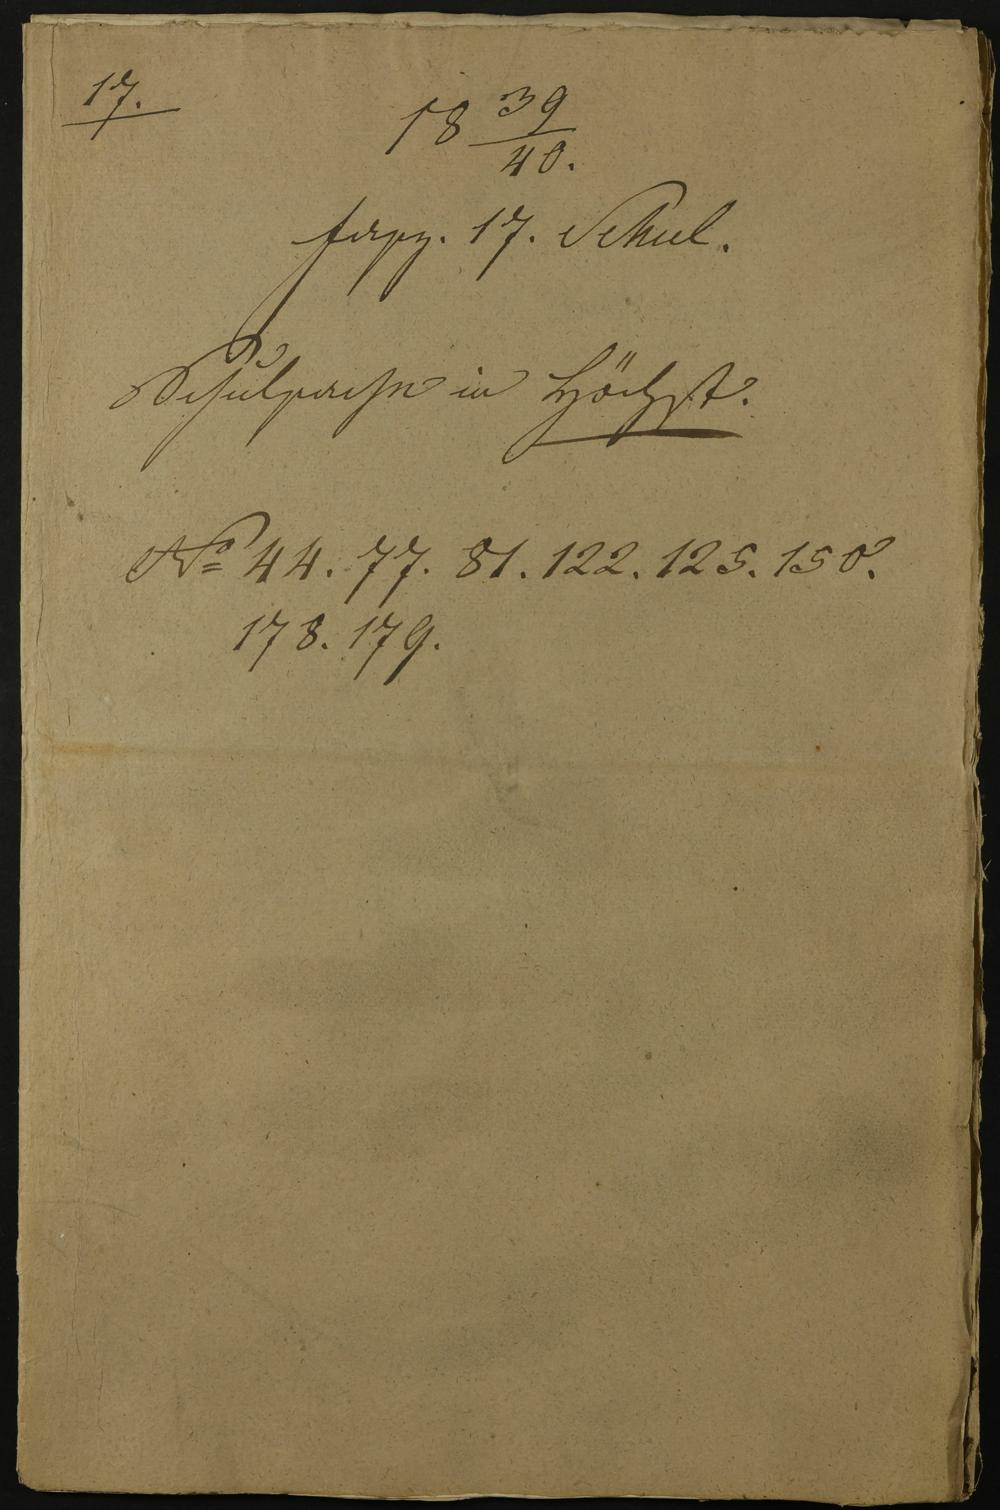 17.
18 39/40.
fasz. 17. Schul.
Schulsache in Höchst.
No 44. 77. 81. 122. 125. 150.
178. 179.